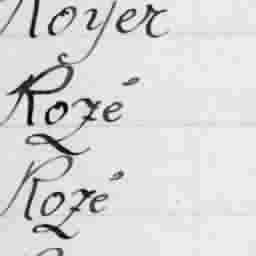 Noyer
Rozé
Rozé